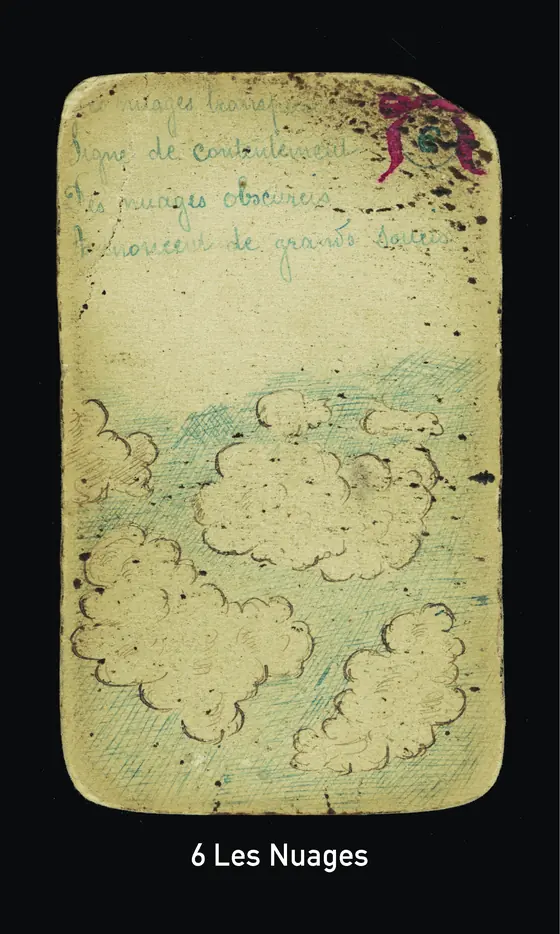 nuages
Signe de contentement
Les nuages obscurcis
Annoncent de grands soucis
6
6 Les Nuages